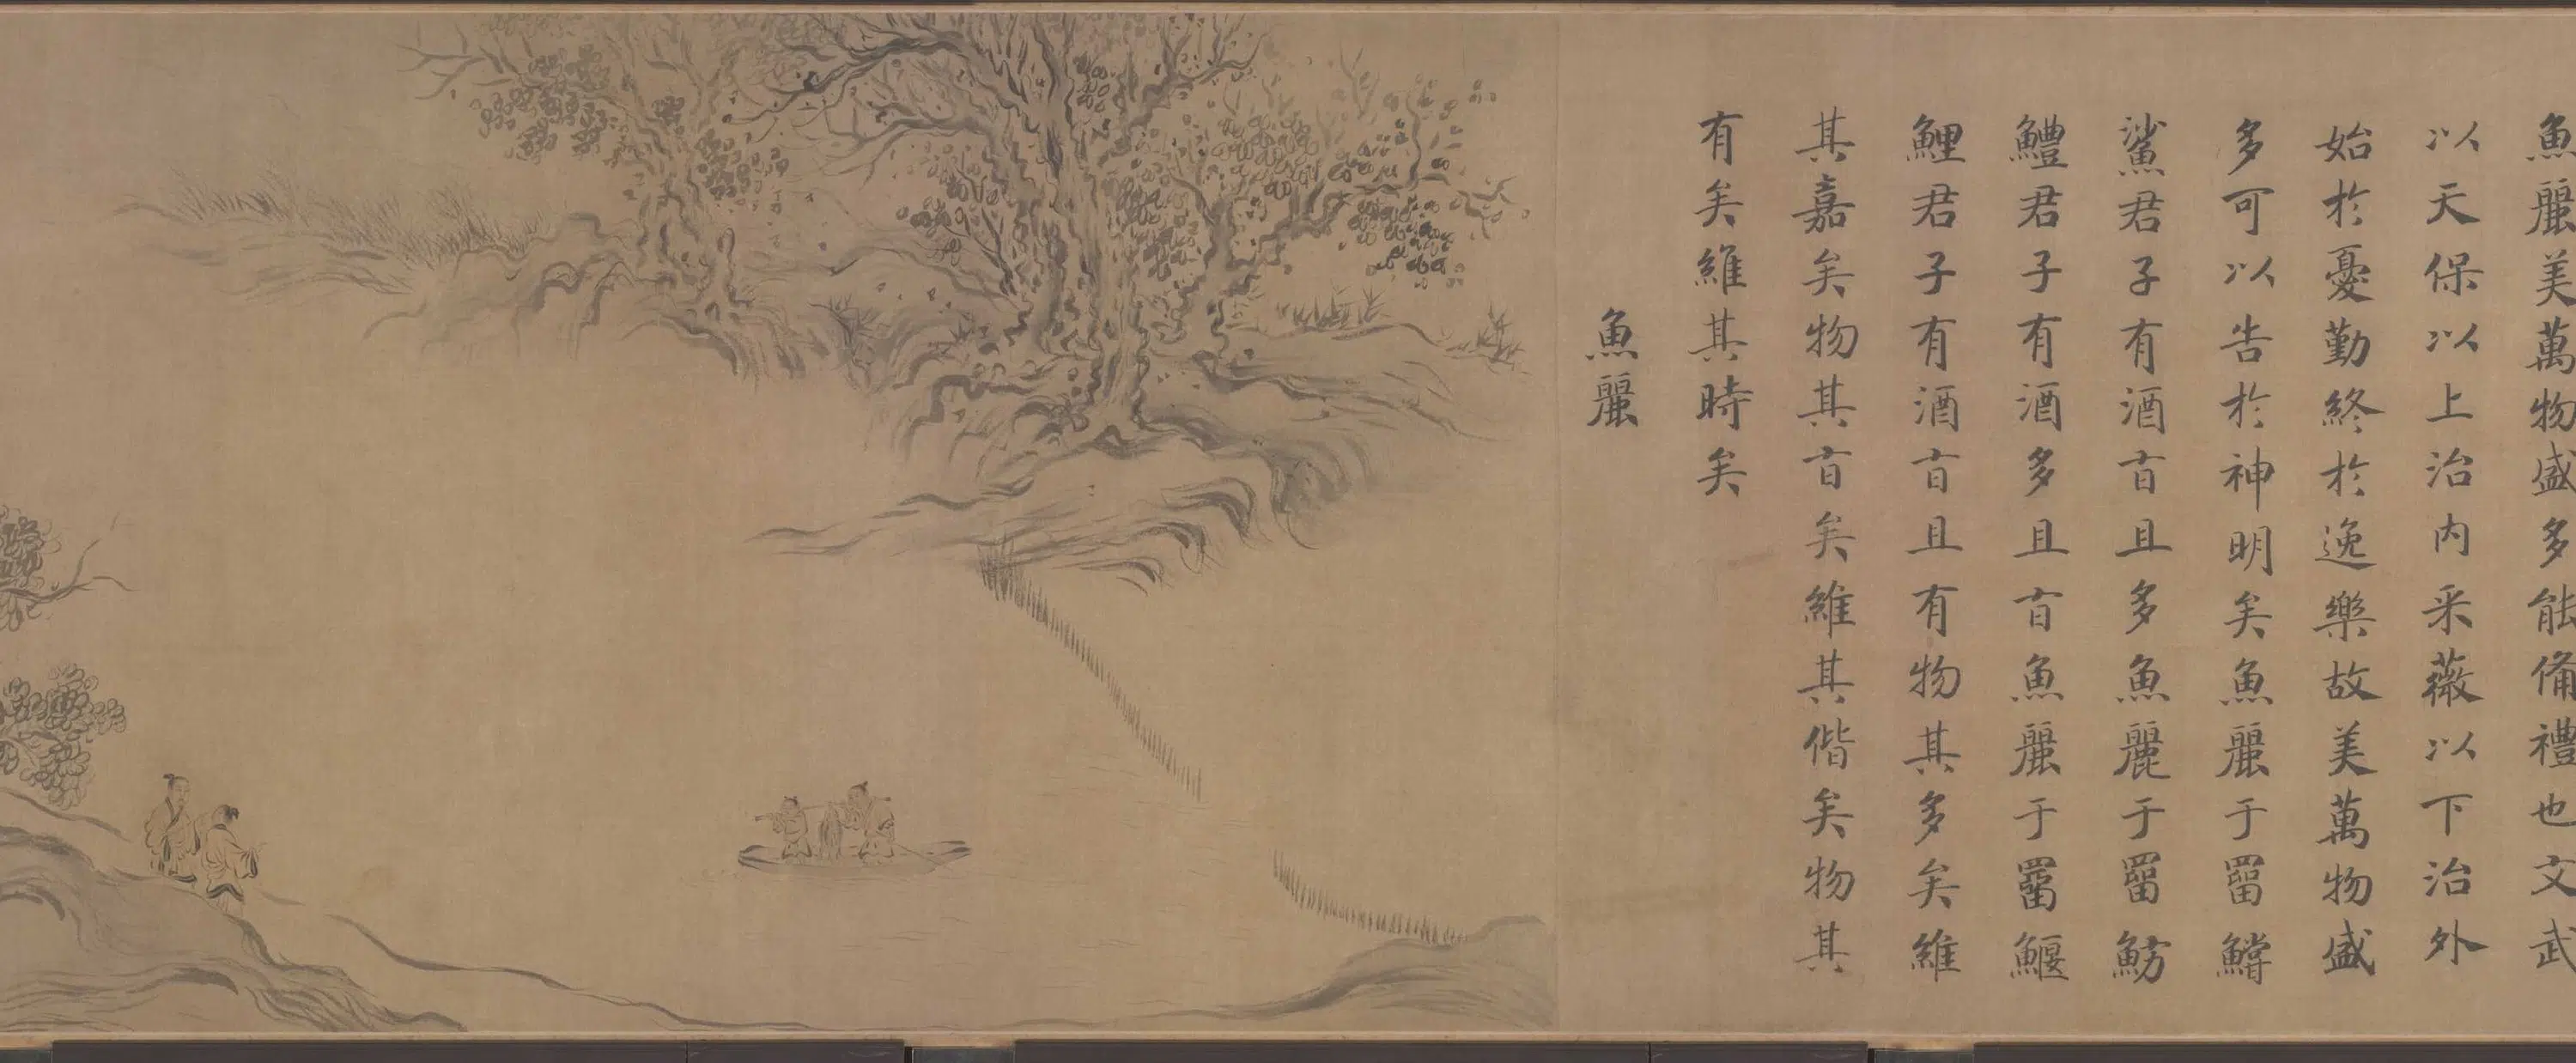 魚麗美萬物盛多能備禮也文武
以天保以上治内采薇以下治外
始於憂勤終於逸樂故美萬物盛
多可以告於神明矣魚麗于罶鱨
鯊君子有酒旨且多魚麗于罶魴
鱧君子有酒多且旨魚麗于罶鰋
鯉君子有酒旨且有物其多矣維
其嘉矣物其旨矣維其偕矣物其
有矣維其時矣
魚麗